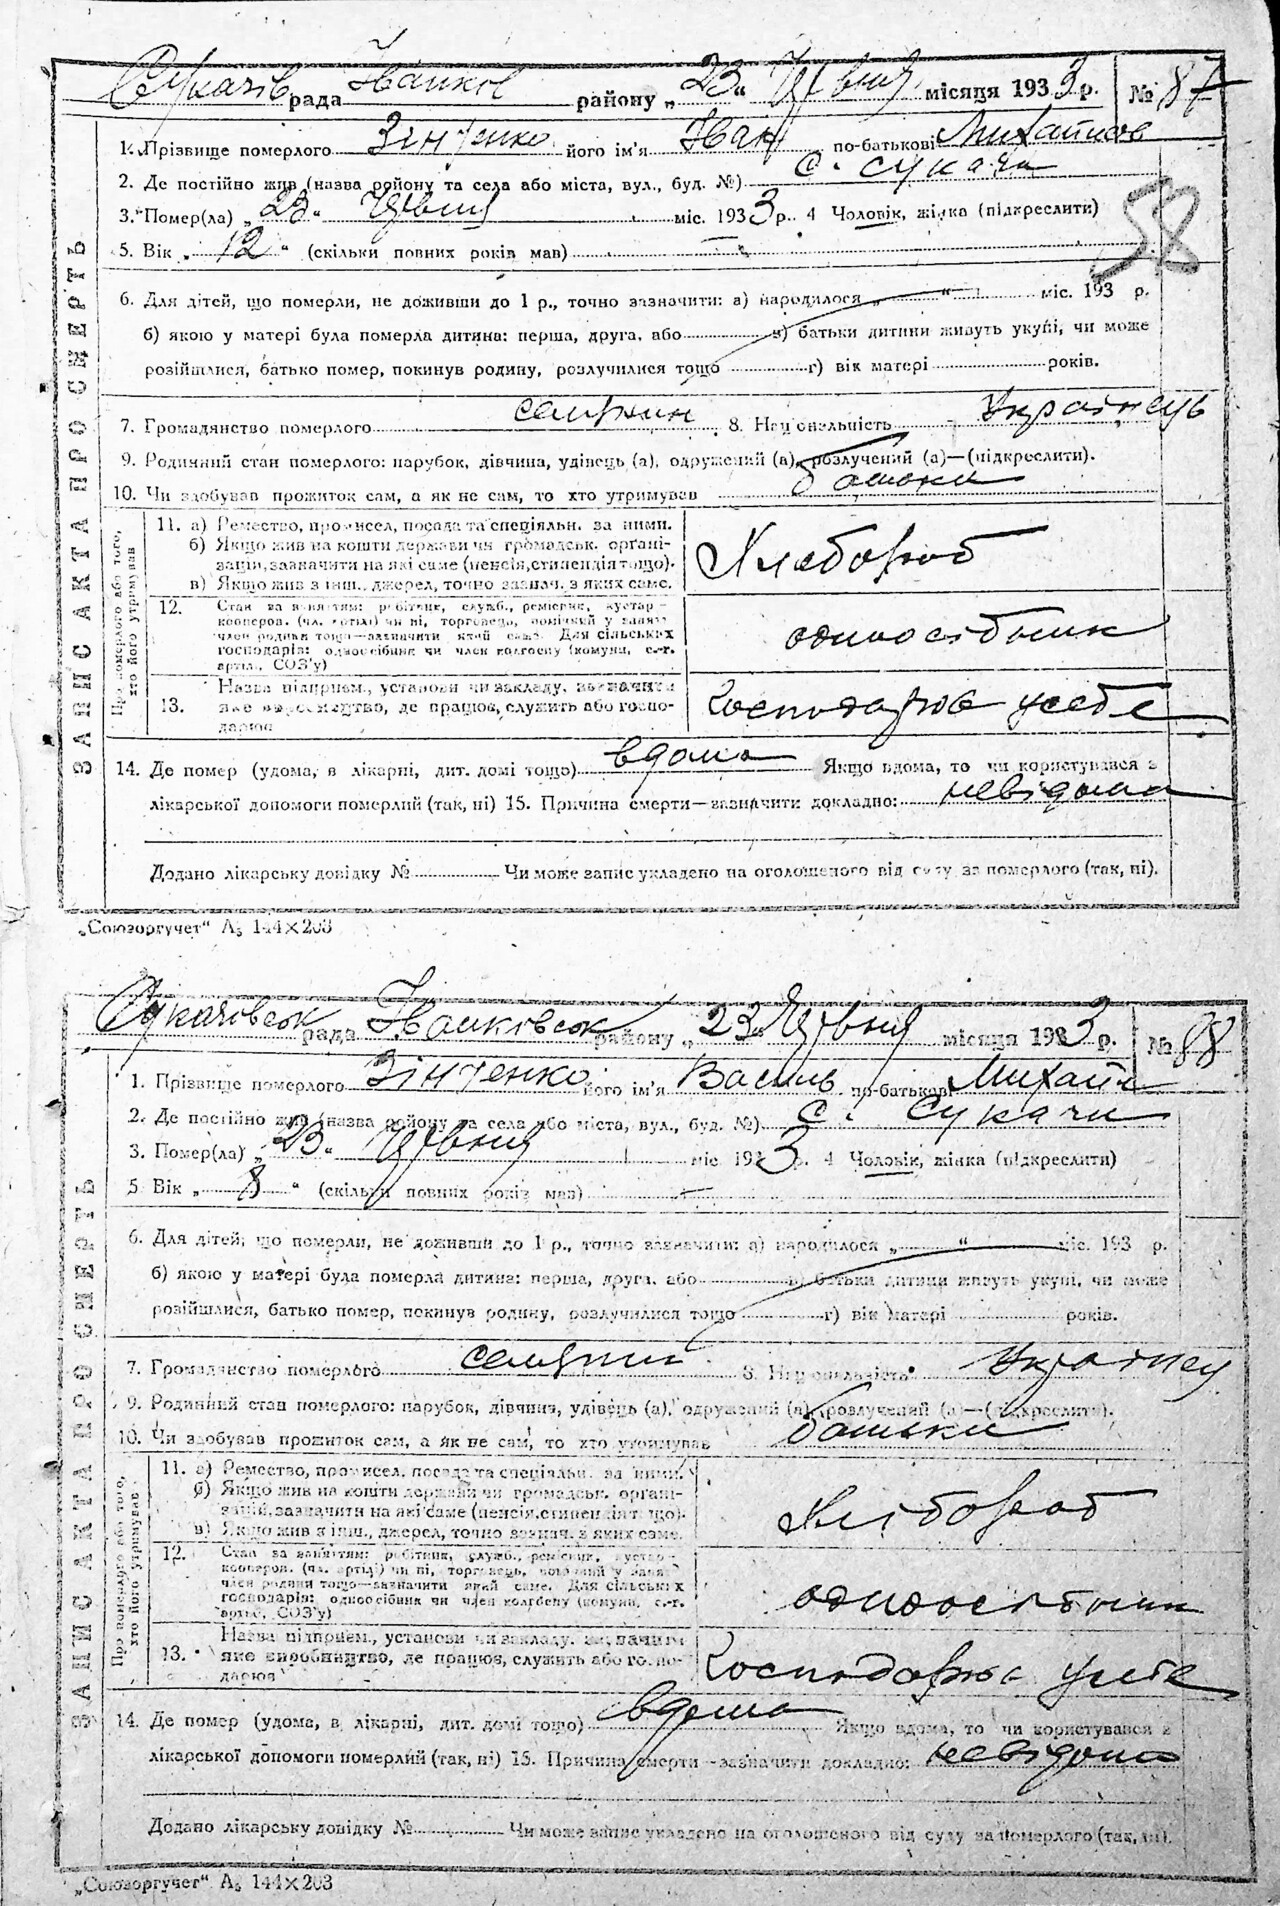 Сукачів рада Іванков району „23“ Червня місяця 1933 р. № 87
ЗАПИС АКТА ПРО СМЕРТЬ
1. Прізвище померлого Зінченко його ім'я Іван по-батькові Михайлов
2. Де постійно жив (назва району та села або міста, вул., буд. №) с. Сукачи
3. Помер(ла) „23“ Червня міс. 1933 р. 4 Чоловік, жінка (підкреслити)
58
5. Вік „12“ (скільки повних років мав)
6. Для дітей, що померли, не доживши до 1 р., точно зазначити: а) народилося „ “ міс. 193 р.
б) якою у матері була померла дитина: перша, друга, або в) батьки дитини живуть укупі, чи може
розійшлися, батько помер, покинув родину, розлучилися тощо г) вік матері років.
7. Громадянство померлого селянин 8. Національність Українець
9. Родинний стан померлого: парубок, дівчина, удівець (а), одружений (а), розлучений (а)—(підкреслити).
10. Чи здобував прожиток сам, а як не сам, то хто утримував батьки
Про померлого або того, хто його утримував
11. а) Ремество, промисел, посада та спеціяльн. за ними.
б) Якщо жив на кошти держави чи громадськ. органі-
зацій, зазначити на які саме (пенсія, стипендія тощо).
в) Якщо жив з інш. джерел, точно зазнач. з яких саме.
Хлебороб
12. Стан за заняттям: робітник, служб., ремісник, кустар-
кооперов. (чл. артілі) чи ні, торговець, помічний у занят.
член родини тощо—зазначити який саме. Для сільських
господарів: одноосібник чи член колгоспу (комуни, с.-г.
артіл., СОЗ'у)
одноосібник
13. Назва підприєм., установи чи закладу, зазначити
яке виробництво, де працює, служить або госпо-
дарює
Господарює у себе
14. Де помер (удома, в лікарні, дит. домі тощо) вдома Якщо вдома, то чи користувався з
лікарської допомоги померлий (так, ні) 15. Причина смерти—зазначити докладно: невідома
Додано лікарську довідку № Чи може запис укладено на оголошеного від суду за померлого (так, ні).
„Союзоргучет“ А₅ 144×203
Сукачівськ рада Іванковськ району „23“ Червня місяця 1933 р. № 88
ЗАПИС АКТА ПРО СМЕРТЬ
1. Прізвище померлого Зінченко його ім'я Василь по-батькові Михайл
2. Де постійно жив (назва району та села або міста, вул., буд. №) с. Сукачи
3. Помер(ла) „23“ Червня міс. 1933 р. 4 Чоловік, жінка (підкреслити)
5 Вік „8“ (скільки повних років мав)
6. Для дітей, що померли, не доживши до 1 р., точно зазначити: а) народилося „ “ міс. 193 р.
б) якою у матері була померла дитина: перша, друга, або в) батьки дитини живуть укупі, чи може
розійшлися, батько помер, покинув родину, розлучилися тощо г) вік матері років.
7. Громадянство померлого селянин 8. Національність Українец
9. Родинний стан померлого: парубок, дівчина, удівець (а), одружений (а), розлучений (а)—(підкреслити).
10. Чи здобував прожиток сам, а як не сам, то хто утримував батьки
Про померлого або того, хто його утримував
11. а) Ремество, промисел, посада та спеціяльн. за ними.
б) Якщо жив на кошти держави чи громадськ. органі-
зацій, зазначити на які саме (пенсія, стипендія тощо).
в) Якщо жив з інш., джерел, точно зазнач. з яких саме.
Хлібороб
12. Стан за заняттям: робітник, служб., ремісник, кустар-
кооперов. (чл. артілі) чи ні, торговець, помічний у занят.
член родини тощо—зазначити який саме. Для сільських
господарів: одноосібник чи член колгоспу (комуни, с.-г.
артіл., СОЗ'у)
одноосібник
13. Назва підприєм., установи чи закладу, зазначити
яке виробництво, де працює, служить або госпо-
дарює
Господарює у себе
14. Де помер (удома, в лікарні, дит. домі тощо) вдома Якщо вдома, то чи користувався з
лікарської допомоги померлий (так, ні) 15. Причина смерти—зазначити докладно: невідома
Додано лікарську довідку № Чи може запис укладено на оголошеного від суду за померлого (так, ні).
„Союзоргучет“ А₅ 144×203